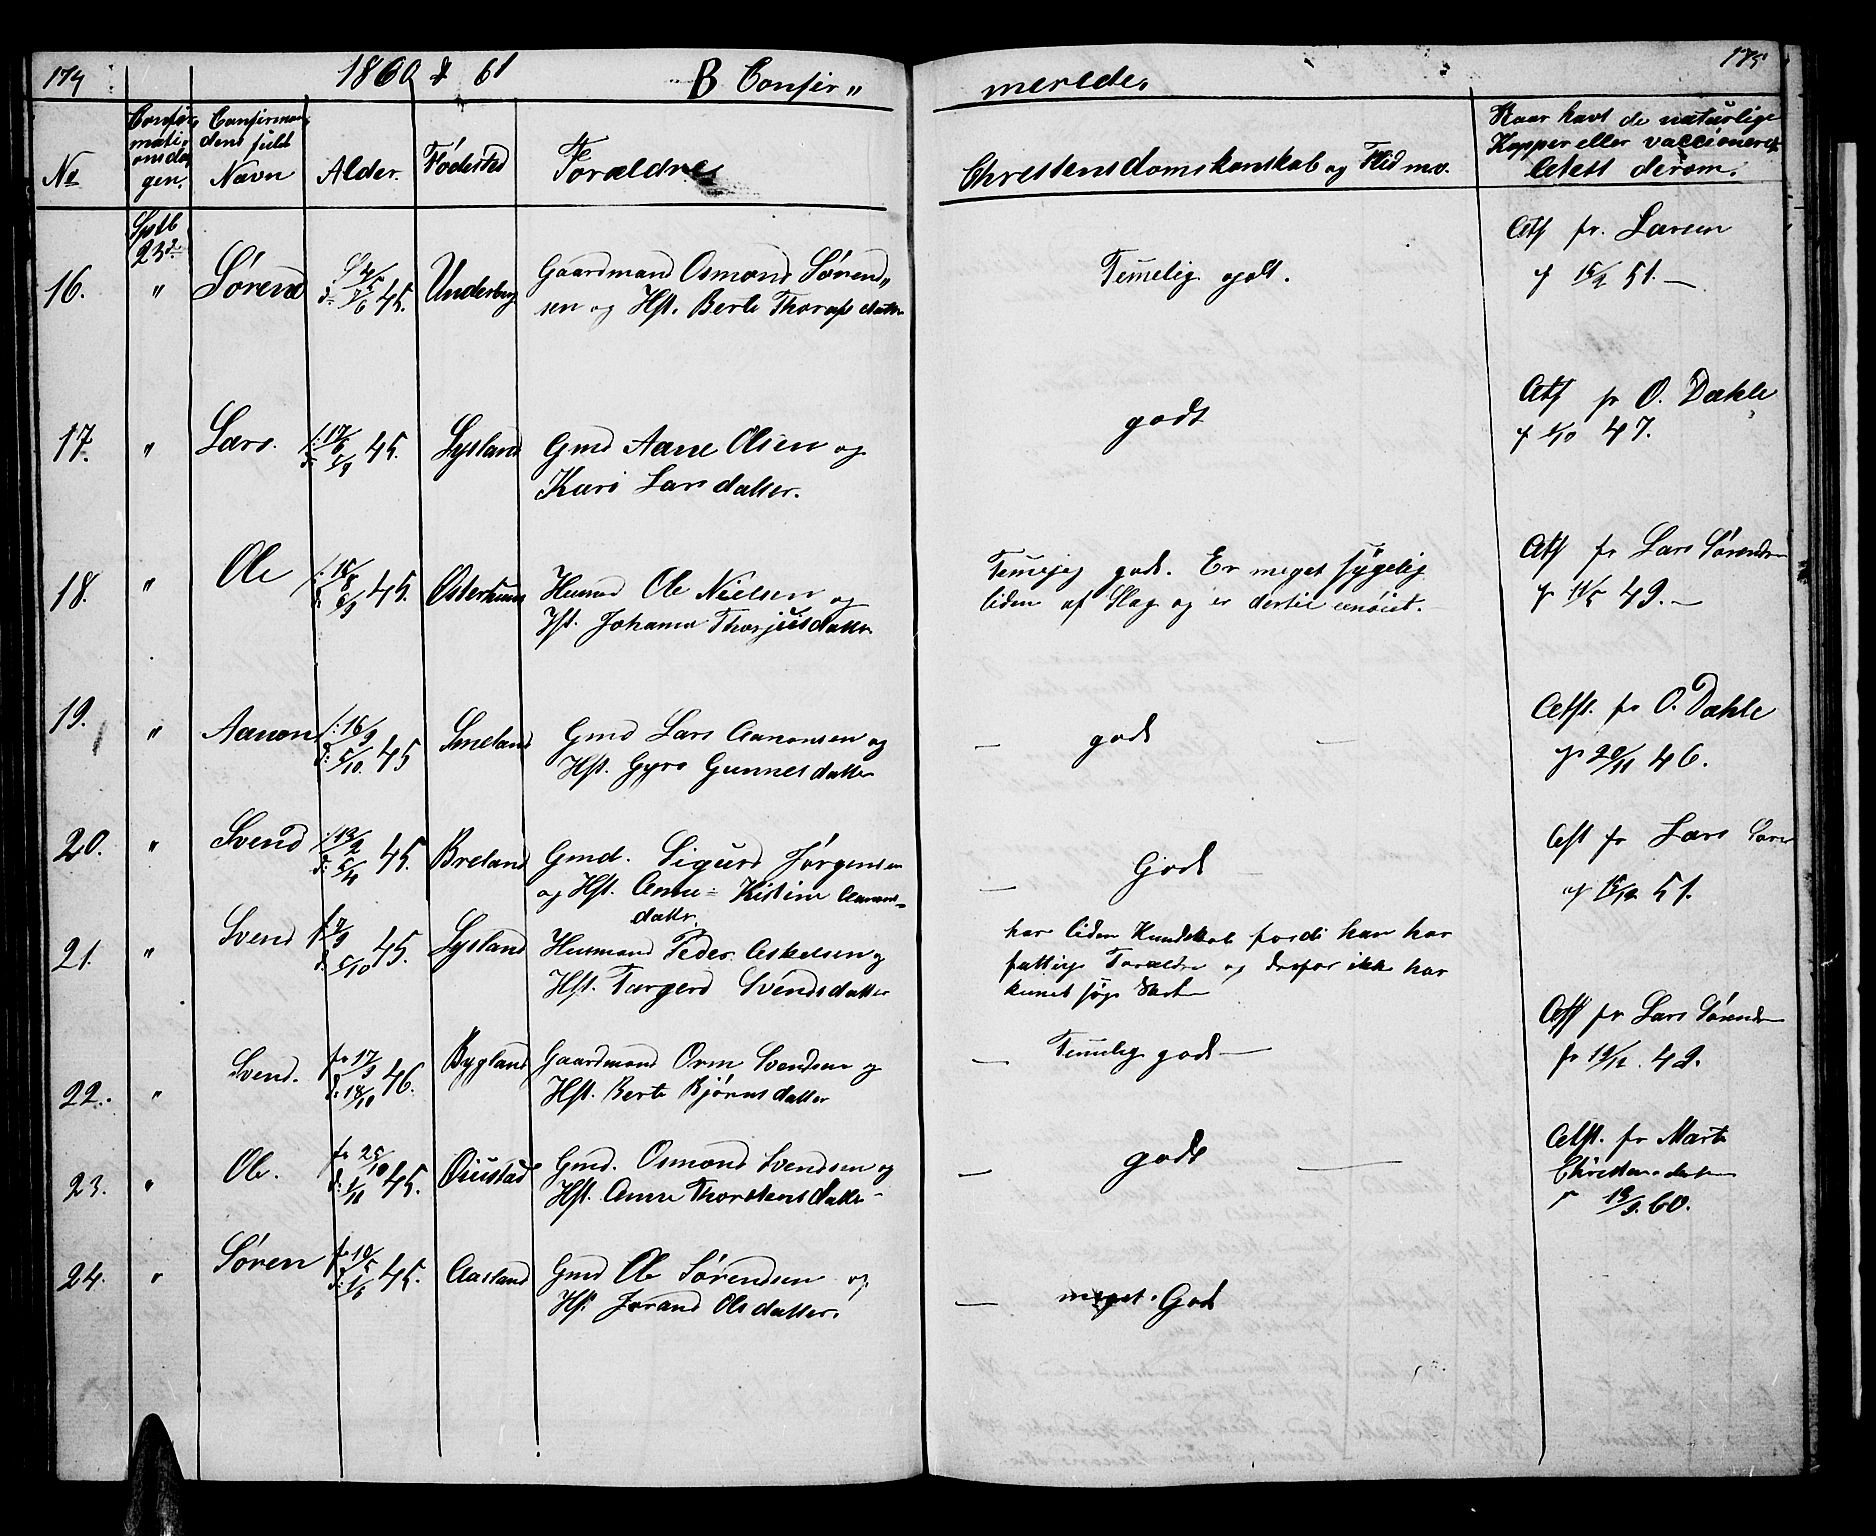 174 1860 & 61 B Confir„
merede. 175
No
Confir
mati„
onsda
gen.
Confirman
dens fulde
Navn
Alder.
Fødested
Forældre
Christensdomskunskab og Flid m.v.
Naar havt de naturlige
Kopper eller vaccineret
Attest derom.
Sptb
23de
16. „ Søren d 45. Underberg Gaardmand Osmond Sørend„
sen og Hst. Berte Thorsdatter
Temelig godt.
Att fr. Larsen
51. —
17. „ Lars. 45. Lysland Gmd Aane Olsen og
Kari Larsdatter.
godt
Att fr O. Dahle
47.
18. „ Ole 45. Husmd Ole Nielsen og
Hst. Johanna Thorjusdatter
godt. Er meget sygelig
liden af Slag og er dertil
Att fr Lars Sørends
49. —
19. „ Aanon f: 16/9 d: 5/10 45 Smeland Gmd Lars Aanonsen og
Hst. Gyro Gunnelsdatter
— godt —
Attst. fr O. Dahle
20/11 46.
20. „ Svend 45. Breland Gmd. Sigurd Jørgensen
og Hst. Anne = Kistine Aanons=
datter.
— Godt —
Att fr Lars Søren
51.
21. „ Svend 45. Lysland Husmand Peder Askelsen og
Hst. Targerd Svendsdatter
har liden Kundskab fordi han har
fattige Forældre og derfor ikke har
kunet søge Skole
22. „ Svend. fø 17/9 d: 18/10 46. Bygland Gaardmand Orm Svendsen og
Hst. Berte Bjørnsdatter
— Temelig godt —
Att fr Lars Sørends
49.
23. „ Ole. fø 25/10 45. Øiestad Gmd. Osmond Svendsen og
Hst. Anne Thorstensdatter
— godt —
Attst. fr Marte
Christensdatter
60.
24. „ Søren 45. Aasland Gmd Ole Sørendsen og
Hst Jorand Olsdatter.
— meget. Godt